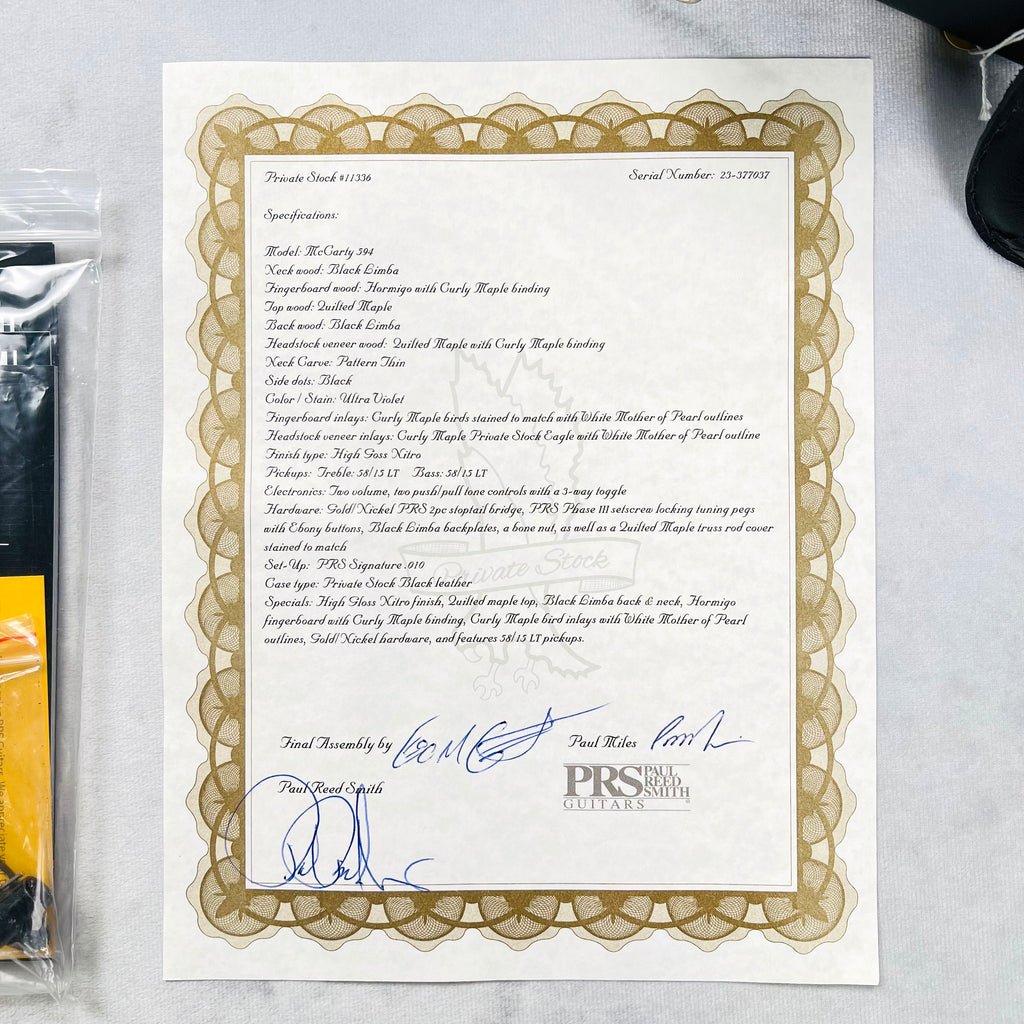 Private Stock #11336
Serial Number: 23-377037
Specifications:
Model: McCarty 594
Neck wood: Black Limba
Fingerboard wood: Hormigo with Curly Maple binding
Top wood: Quilted Maple
Back wood: Black Limba
Headstock veneer wood: Quilted Maple with Curly Maple binding
Neck Carve: Pattern Thin
Side dots: Black
Color / Stain: Ultra Violet
Fingerboard inlays: Curly Maple birds stained to match with White Mother of Pearl outlines
Headstock veneer inlays: Curly Maple Private Stock Eagle with White Mother of Pearl outline
Finish type: High Goss Nitro
Pickups: Treble: 58/15 LT Bass: 58/15 LT
Electronics: Two volume, two push/pull tone controls with a 3-way toggle
Hardware: Gold/Nickel PRS 2pc stoptail bridge, PRS Phase III setscrew locking tuning pegs
with Ebony buttons, Black Limba backplates, a bone nut, as well as a Quilted Maple truss rod cover
stained to match
Set-Up: PRS Signature .010
Case type: Private Stock Black leather
Specials: High Gloss Nitro finish, Quilted maple top, Black Limba back & neck, Hormigo
fingerboard with Curly Maple binding, Curly Maple bird inlays with White Mother of Pearl
outlines, Gold/Nickel hardware, and features 58/15 LT pickups.
Private Stock
Final Assembly by
Paul Miles
Paul Reed Smith
PRS PAUL
REED
SMITH
GUITARS